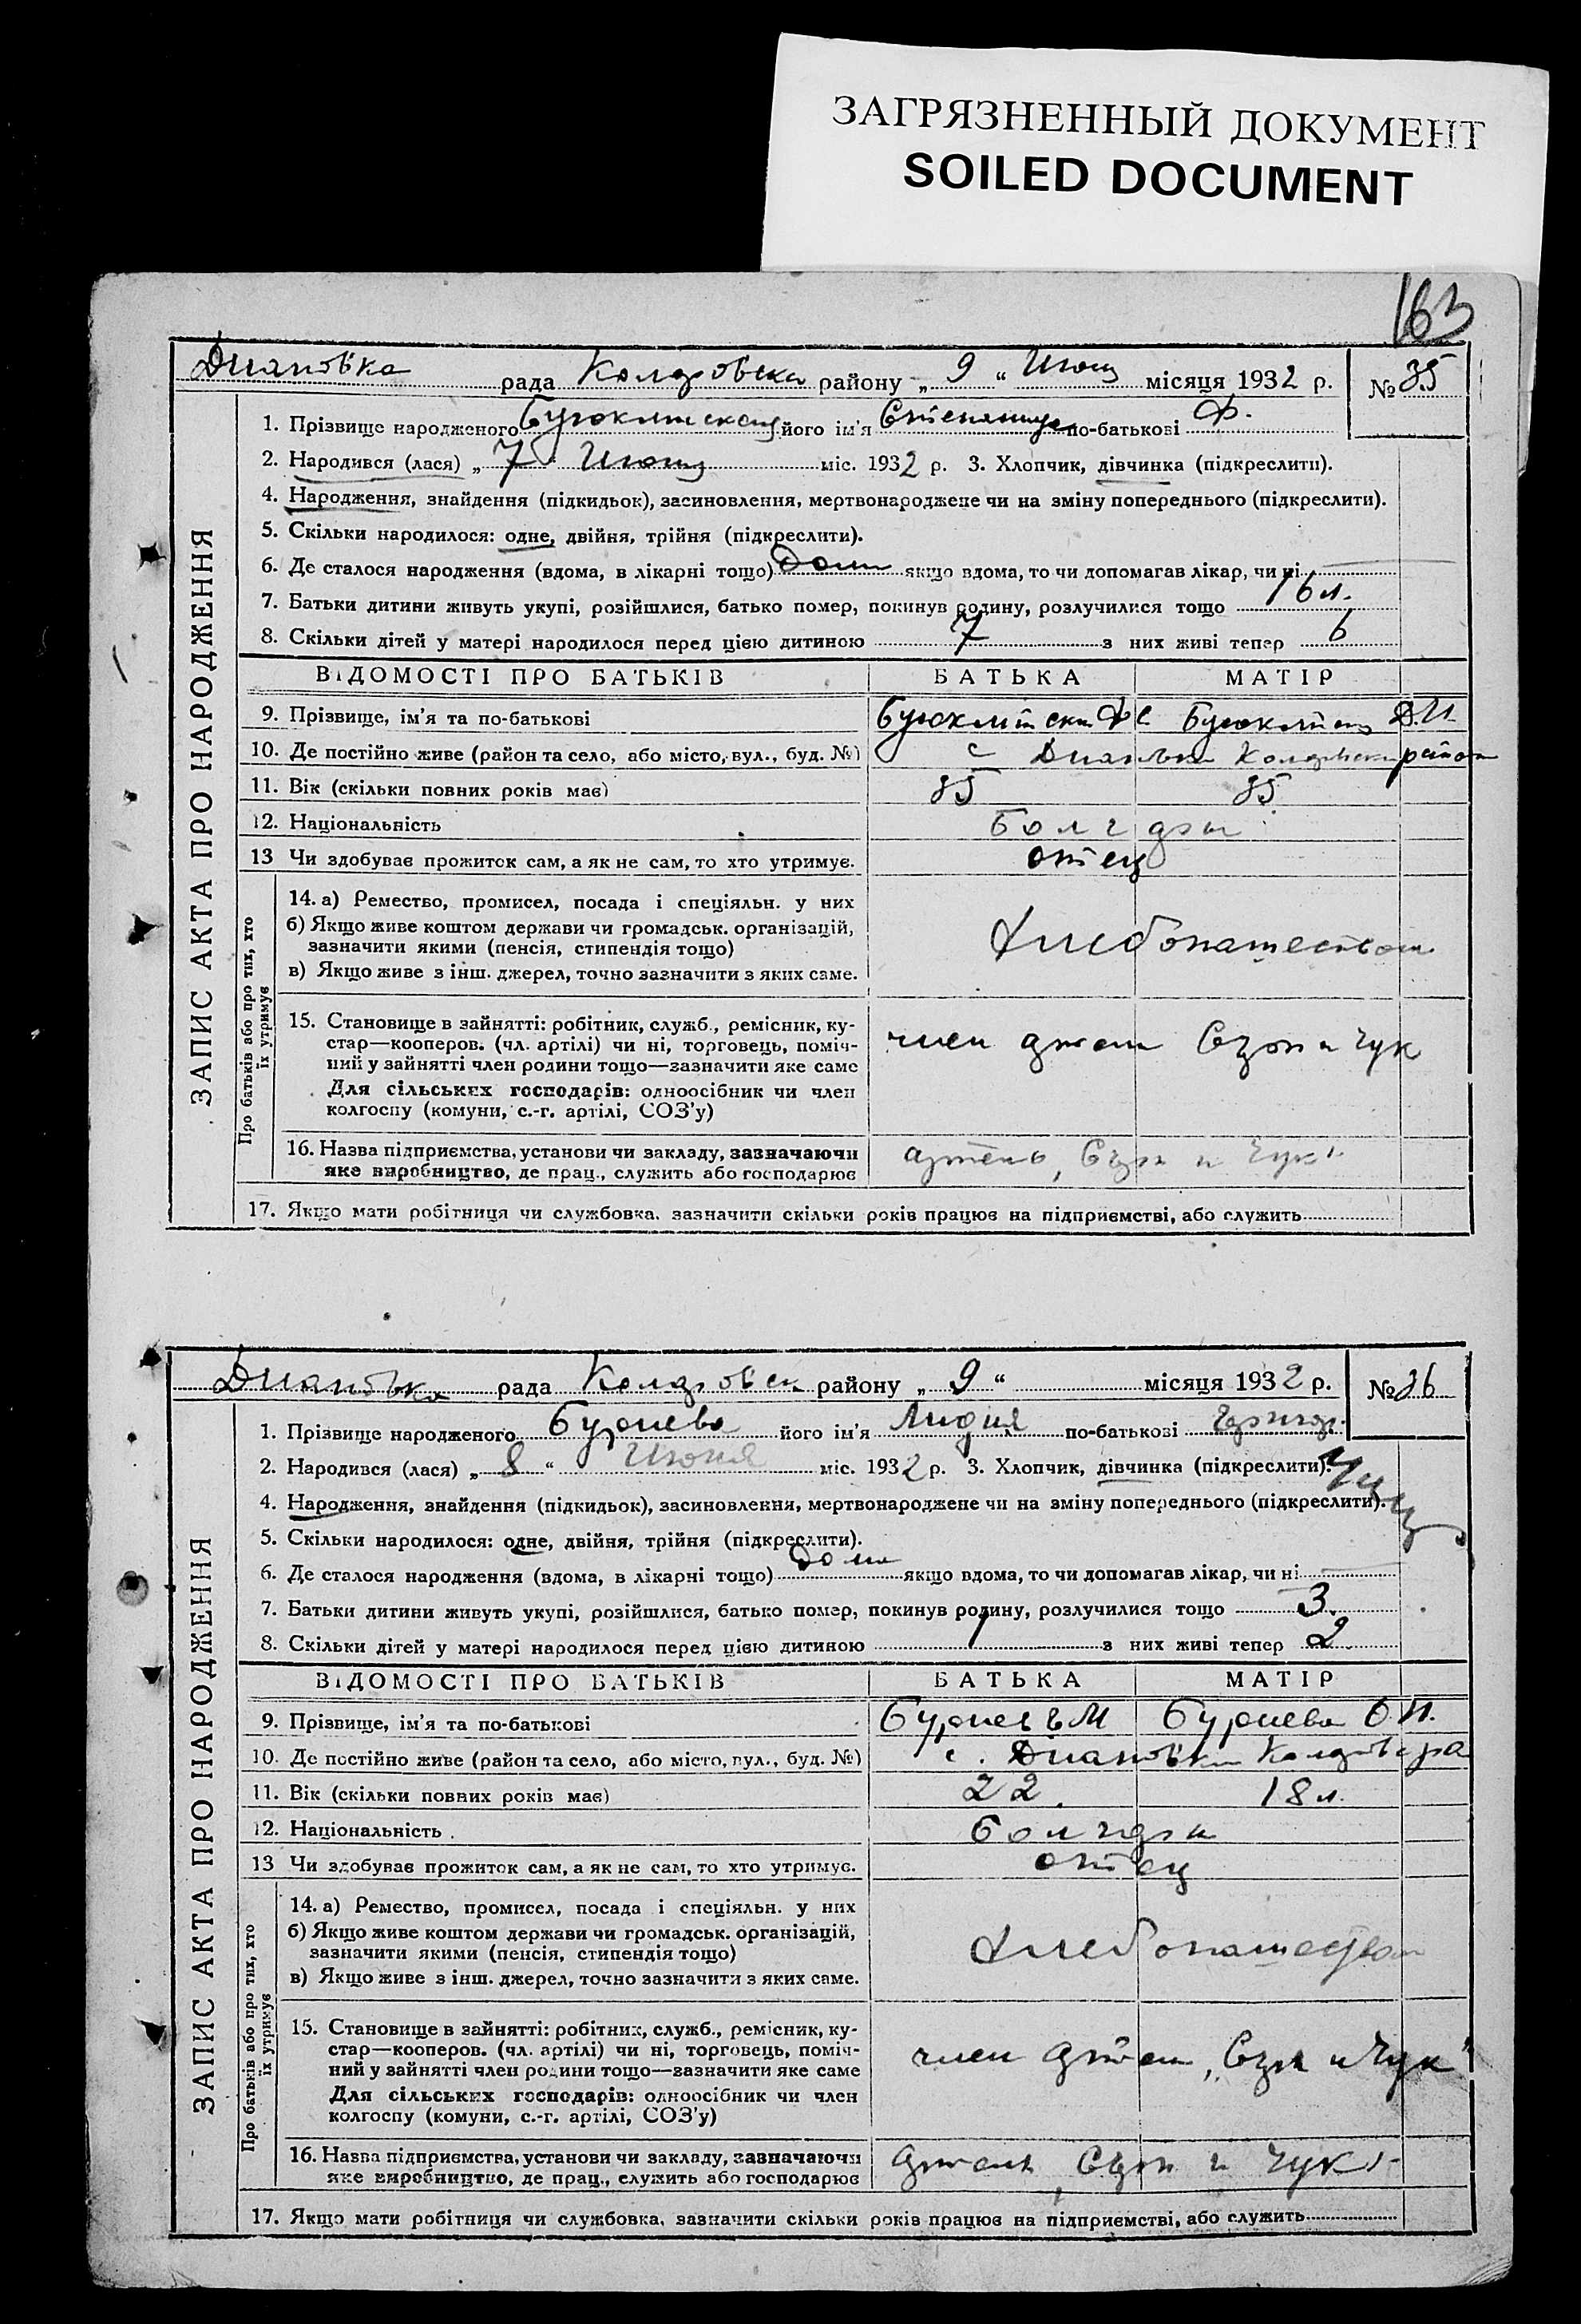 ЗАГРЯЗНЕННЫЙ ДОКУМЕНТ
SOILED DOCUMENT
163
Диановка рада району „ 9 “ місяця 1932 р. № 35
ЗАПИС АКТА ПРО НАРОДЖЕННЯ
1. Прізвище народженого його ім'я по-батькові Ф.
2. Народився (лася) „ 7 “ міс. 1932 р. 3. Хлопчик, дівчинка (підкреслити).
4. Народження, знайдення (підкидьок), засиновлення, мертвонароджене чи на зміну попереднього (підкреслити).
5. Скільки народилося: одне, двійня, трійня (підкреслити).
6. Де сталося народження (вдома, в лікарні тощо) якщо вдома, то чи допомагав лікар, чи ні
7. Батьки дитини живуть укупі, розійшлися, батько помер, покинув родину, розлучилися тощо 16 л.
8. Скільки дітей у матері народилося перед цією дитиною 7 з них живі тепер 6
ВІДОМОСТІ ПРО БАТЬКІВ БАТЬКА МАТІР
9. Прізвище, ім'я та по-батькові
10. Де постійно живе (район та село, або місто, вул., буд. №) с район
11. Вік (скільки повних років має) 35 35
12. Національність Болгары
13 Чи здобуває прожиток сам, а як не сам, то хто утримує. отец
Про батьків або про тих, хто їх утримує
14. а) Ремество, промисел, посада і спеціяльн. у них
б) Якщо живе коштом держави чи громадськ. організацій,
зазначити якими (пенсія, стипендія тощо)
в) Якщо живе з інш. джерел, точно зазначити з яких саме.
15. Становище в зайнятті: робітник, служб., ремісник, ку-
стар—кооперов. (чл. артілі) чи ні, торговець, поміч-
ний у зайнятті член родини тощо—зазначити яке саме
Для сільських господарів: одноосібник чи член
колгоспу (комуни, с.-г. артілі, СОЗ'у)
член и Чук
16. Назва підприємства, установи чи закладу, зазначаючи
яке виробництво, де прац., служить або господарює
артель и Чук
17. Якщо мати робітниця чи службовка, зазначити скільки років працює на підприємстві, або служить
Диановка рада району „ 9 “ місяця 1932 р. № 36
ЗАПИС АКТА ПРО НАРОДЖЕННЯ
1. Прізвище народженого Бурлева його ім'я Лидия по-батькові
2. Народився (лася) „ 8 “ Июня міс. 1932 р. 3. Хлопчик, дівчинка (підкреслити).
4. Народження, знайдення (підкидьок), засиновлення, мертвонароджене чи на зміну попереднього (підкреслити).
5. Скільки народилося: одне, двійня, трійня (підкреслити).
6. Де сталося народження (вдома, в лікарні тощо) якщо вдома, то чи допомагав лікар, чи ні
7. Батьки дитини живуть укупі, розійшлися, батько помер, покинув родину, розлучилися тощо 3.
8. Скільки дітей у матері народилося перед цією дитиною 1 з них живі тепер 2
ВІДОМОСТІ ПРО БАТЬКІВ БАТЬКА МАТІР
9. Прізвище, ім'я та по-батькові
10. Де постійно живе (район та село, або місто, вул., буд. №) с. Диановка
11. Вік (скільки повних років має) 22. 18 л.
12. Національність Болгары
13 Чи здобуває прожиток сам, а як не сам, то хто утримує. отец
Про батьків або про тих, хто їх утримує
14. а) Ремество, промисел, посада і спеціяльн. у них
б) Якщо живе коштом держави чи громадськ. організацій,
зазначити якими (пенсія, стипендія тощо)
в) Якщо живе з інш. джерел, точно зазначити з яких саме.
15. Становище в зайнятті: робітник, служб., ремісник, ку-
стар—кооперов. (чл. артілі) чи ні, торговець, поміч-
ний у зайнятті член родини тощо—зазначити яке саме
Для сільських господарів: одноосібник чи член
колгоспу (комуни, с.-г. артілі, СОЗ'у)
член и Чук"
16. Назва підприємства, установи чи закладу, зазначаючи
яке виробництво, де прац., служить або господарює
и Чук
17. Якщо мати робітниця чи службовка, зазначити скільки років працює на підприємстві, або служить